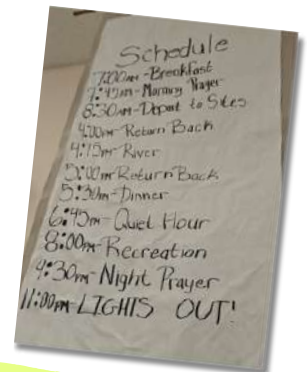 Schedule
7:00AM-Breakfast
7:45AM-Morning Prayer
8:30AM-Depart to Sites
4:00PM-Return Back
4:15PM-River
5:00PM Return Back
5:30PM-Dinner
6:45PM-Quiet Hour
8:00PM-Recreation
9:30PM-Night Prayer
11:00PM-LIGHTS OUT!